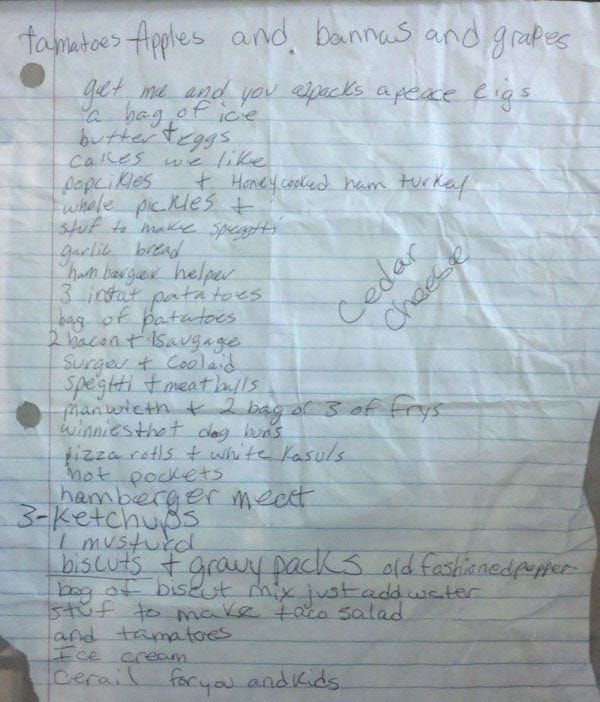 tamatoes Apples and. bannas and grapes
get me and you a2packs apeace cigs
a bag of ice
butter + eggs
cakes we like
popcikles + Honeycooked ham turkey
whole pickles +
stuf to make spegtti
garlic bread
hamberger helper
3 intat patatoes
cedar
cheese
bag of patatoes
2 bacon + 1saugage
surger + coolaid
speghtti + meatballs
manwicth + 2 bag or 3 of frys
winniesthot dog buns
pizza rolls + white Kasuls
hot pockets
hamberger meat
3-ketchups
1 musturd
biscuts + gravy packs old fashioned pepper
bag of biscut mix just add water
stuf to make taco salad
and tamatoes
Ice cream
Cerail for you and kids